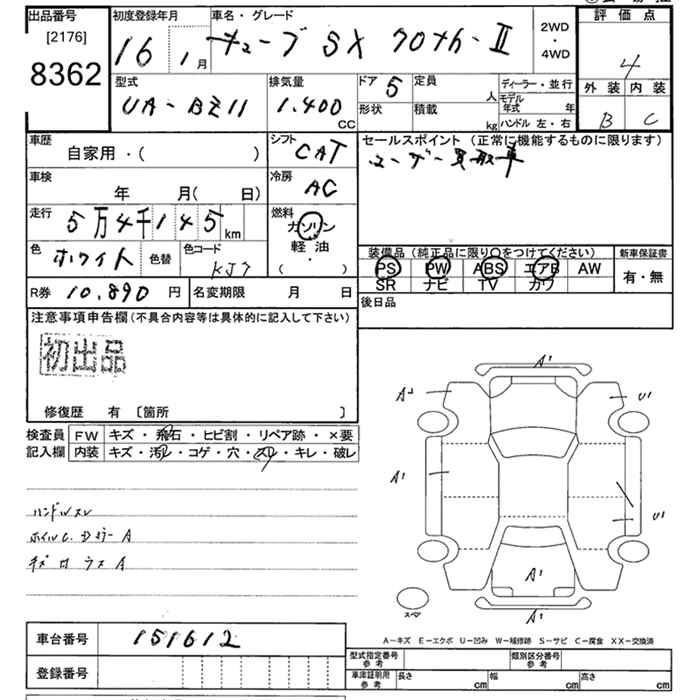 出品番号
[2176]
8362
初度登録年月
16 1月
車名・グレード
キューブ SX 70th-II
2WD
・
4WD
評価点
4
型式
UA-BZ11
排気量
1.400 CC
ドア 5
定員 人
形状
積載 kg
ディーラー・並行
モデル年式 年
ハンドル 左・右
外装 内装
B C
車歴
自家用・( )
シフト
CAT
セールスポイント (正常に機能するものに限ります)
ユーザー買取車
車検
年 月(日)
冷房
AC
走行
5万4千145km
燃料
ガソリン
軽油
( ・ )
色
ホワイト
色替
色コード
KJ7
装備品(純正品に限り○をつけてください)
PS PW ABS エアB AW
SR ナビ TV カワ
新車保証書
有・無
R券 10,890円
名変期限 月 日
後日品
注意事項申告欄(不具合内容等は具体的に記入して下さい)
初出品
修復歴 有 〔箇所 〕
検査員 FW キズ・飛石・ヒビ割・リペア跡・×要
記入欄 内装 キズ・汚レ・コゲ・穴・スリ・キレ・破レ
ハンドルスレ
A A
A1
A2
U1
A1
U1
A1
スペア
A1
A-キズ E-エクボ U-凹み W-補修跡 S-サビ C-腐食 XX-交換済
車台番号 151612
登録番号
型式指定番号 参考
類別区分番号 参考
車庫証明用 参考 長さ cm 幅 cm 高さ cm